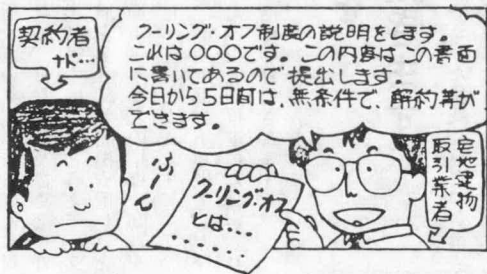 契約者
ナド…
クーリング・オフ制度の説明をします。
これは○○○です。この内容はこの書面
に書いてあるので提出します。
今日から5日間は、無条件で、解約等が
できます。
ふーん
クーリング・オフ
とは…
……
宅地建物
取引業者